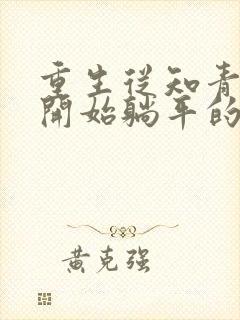 重生從知青
開始躺平的
黃克強